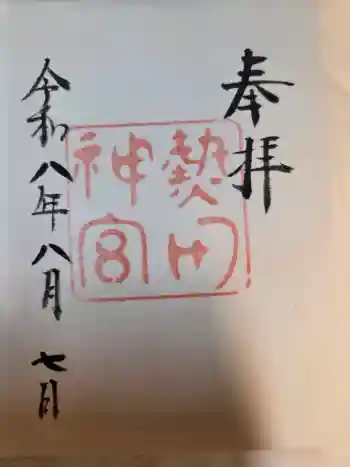 奉拝
熱田
神宮
令和八年八月七日